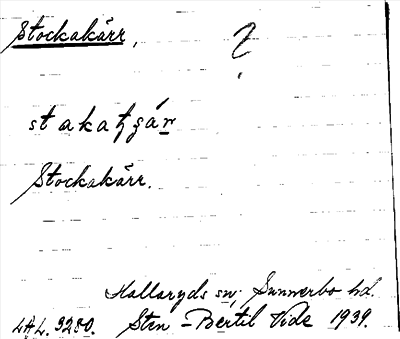 Stockakärr, ?
Stockakärr.
Hallaryds sn; Sunnerbo hd.
LAL. 3280. Sten-Bertil Vide 1939.